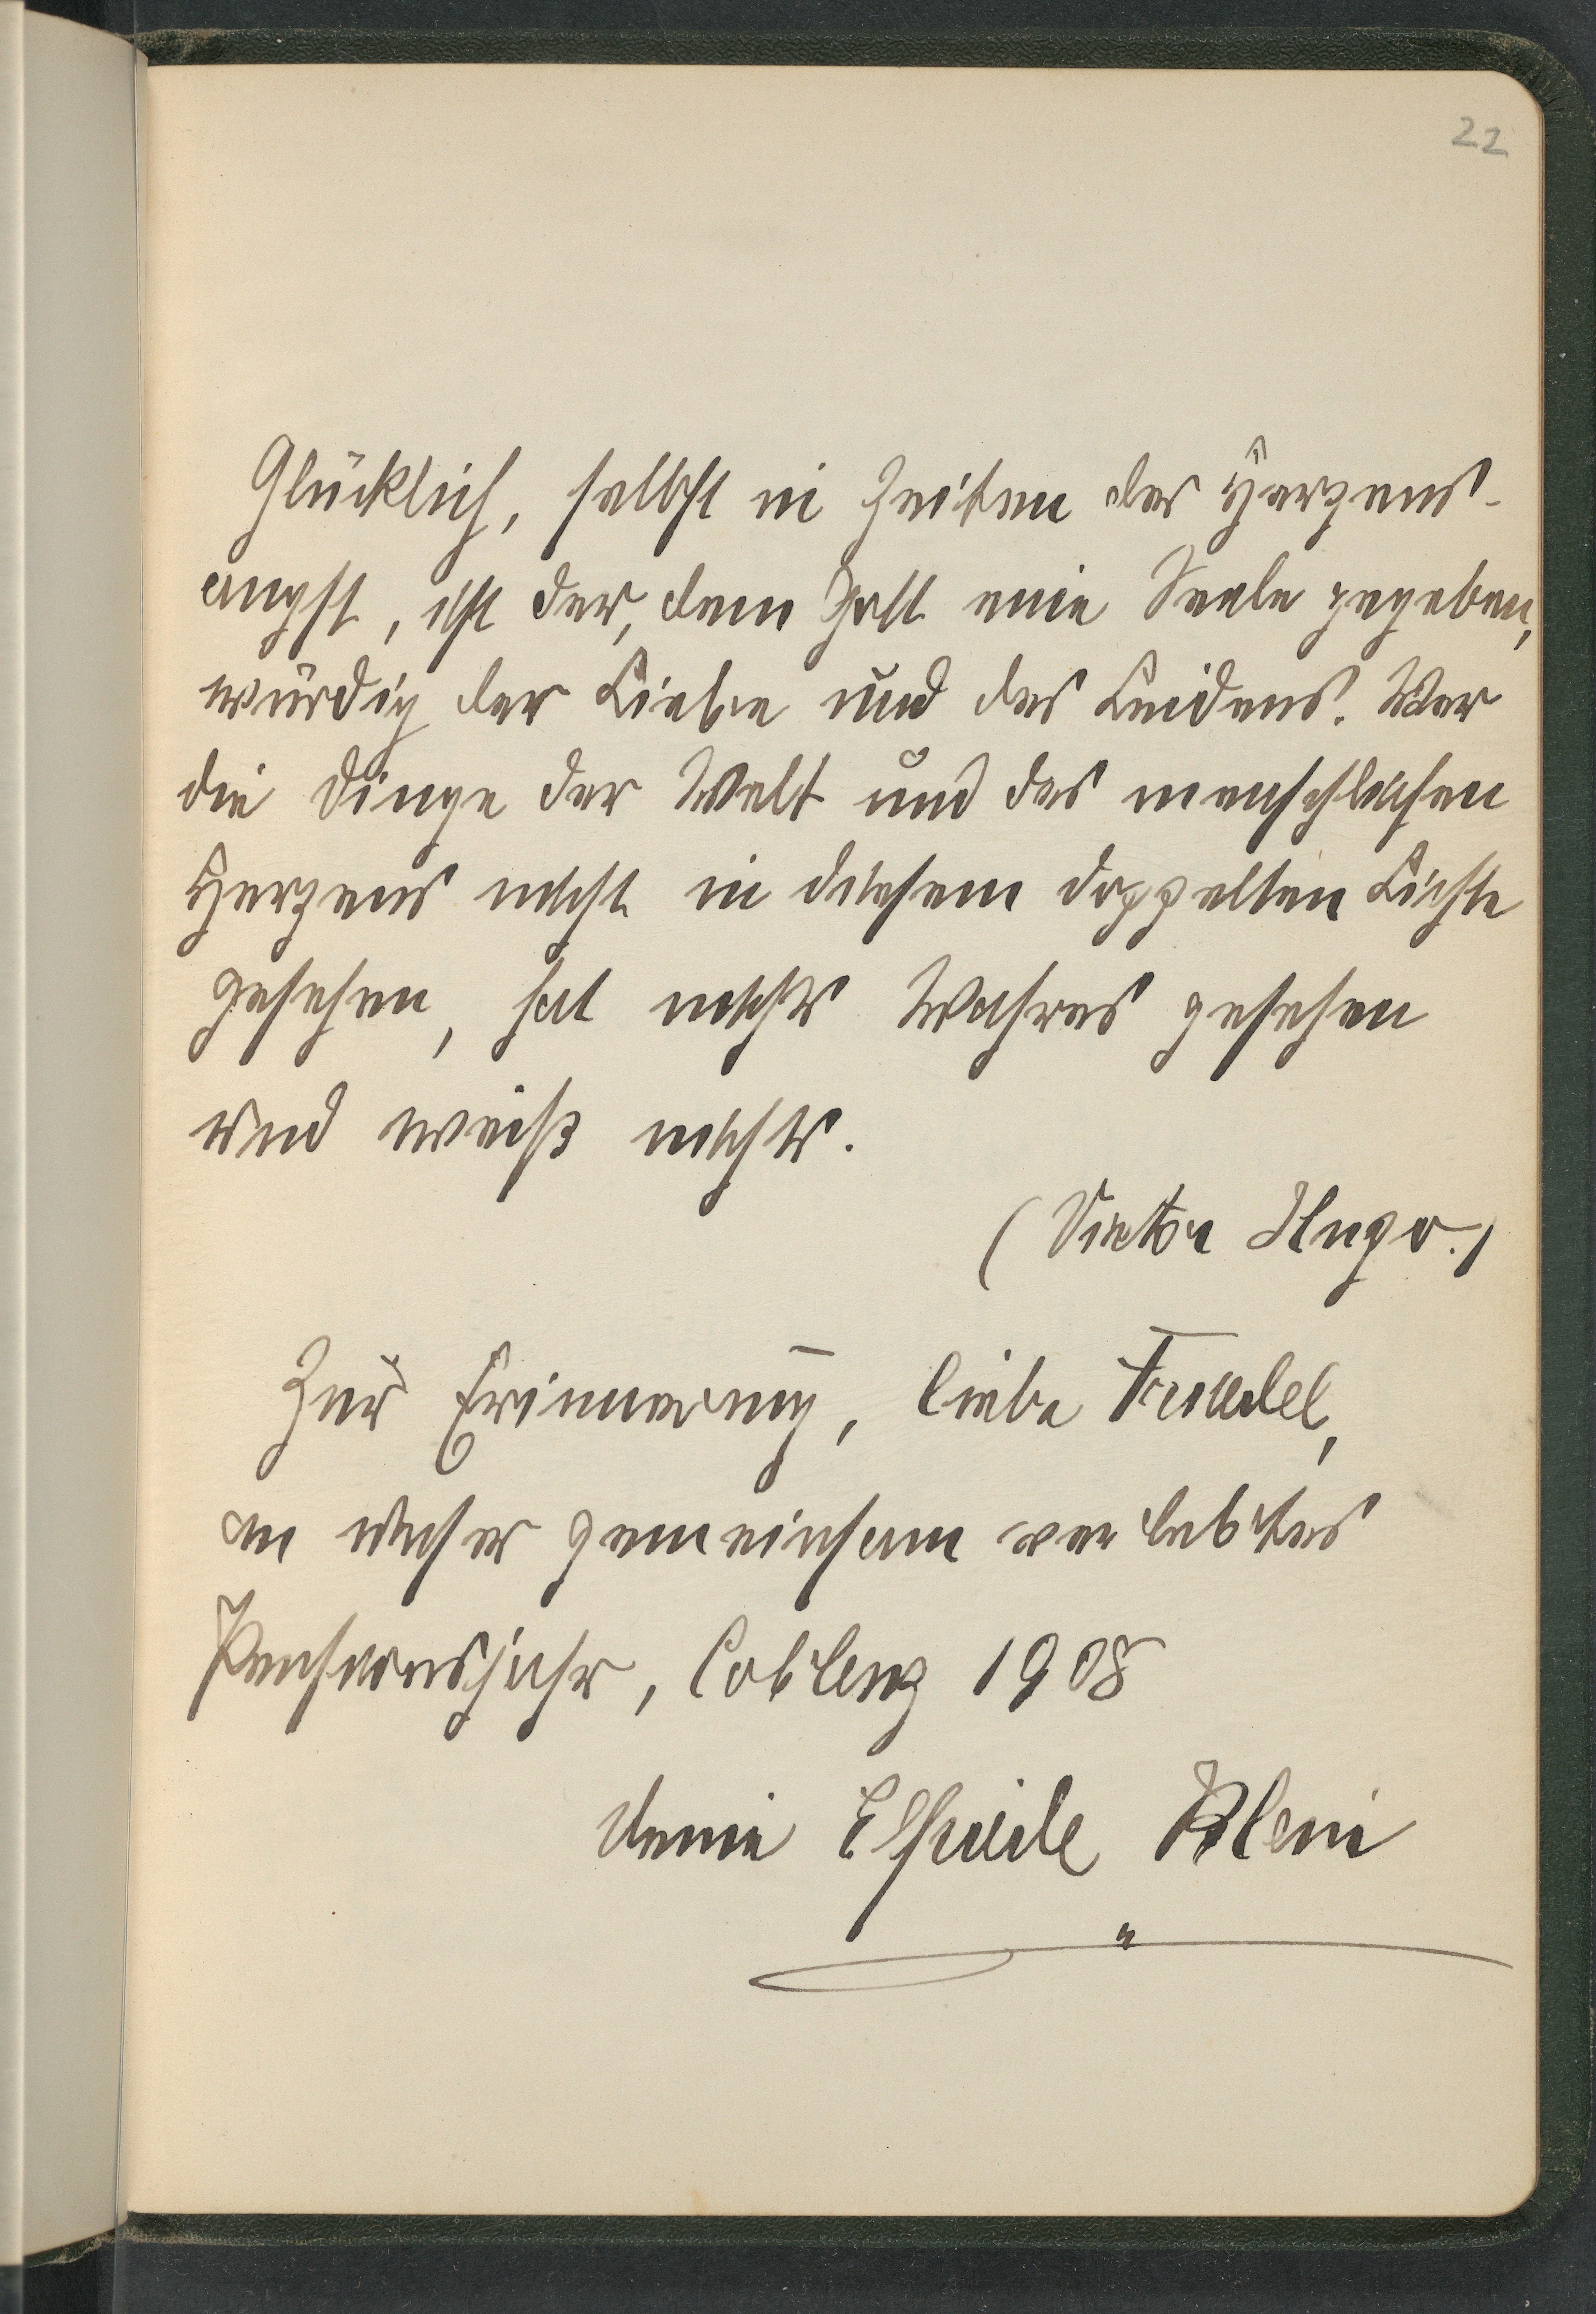 22
Glücklich, selbst in Zeiten der Herzens-
angst, ist der, dem Gott eine Seele gegeben,
würdig der Liebe und des Leidens. Wer
die Dinge der Welt und des menschlichen
Herzens nicht in diesem doppelten Lichte
gesehen, hat nichts Wahres gesehen
und weiß nichts.
(Victor Hugo.)
Zur Erinnerung, liebe Friedel,
an unser gemeinsam verlebtes
Pensionsjahr, Coblenz 1908
Deine Elfriede Klein